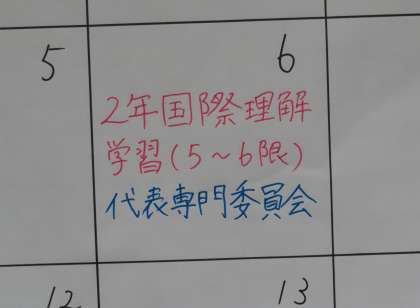 5
6
2年国際理解
学習(5～6限)
代表専門委員会
12
13